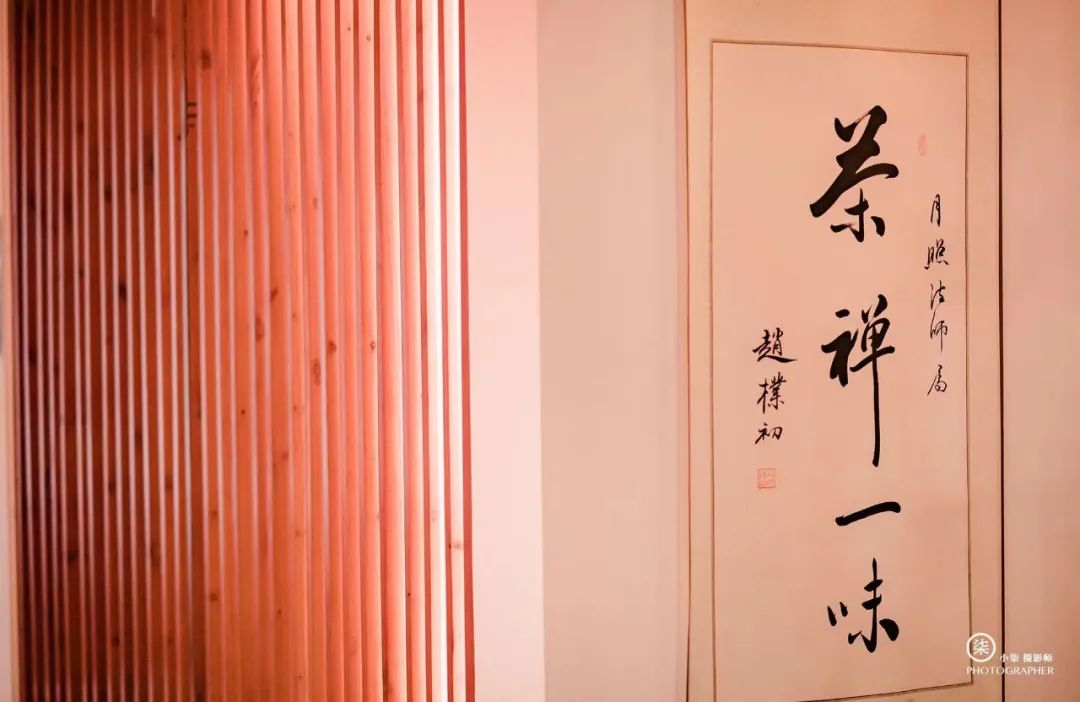 月照法师属
茶禅一味
趙樸初
柒
小柒 摄影师
PHOTOGRAPHER